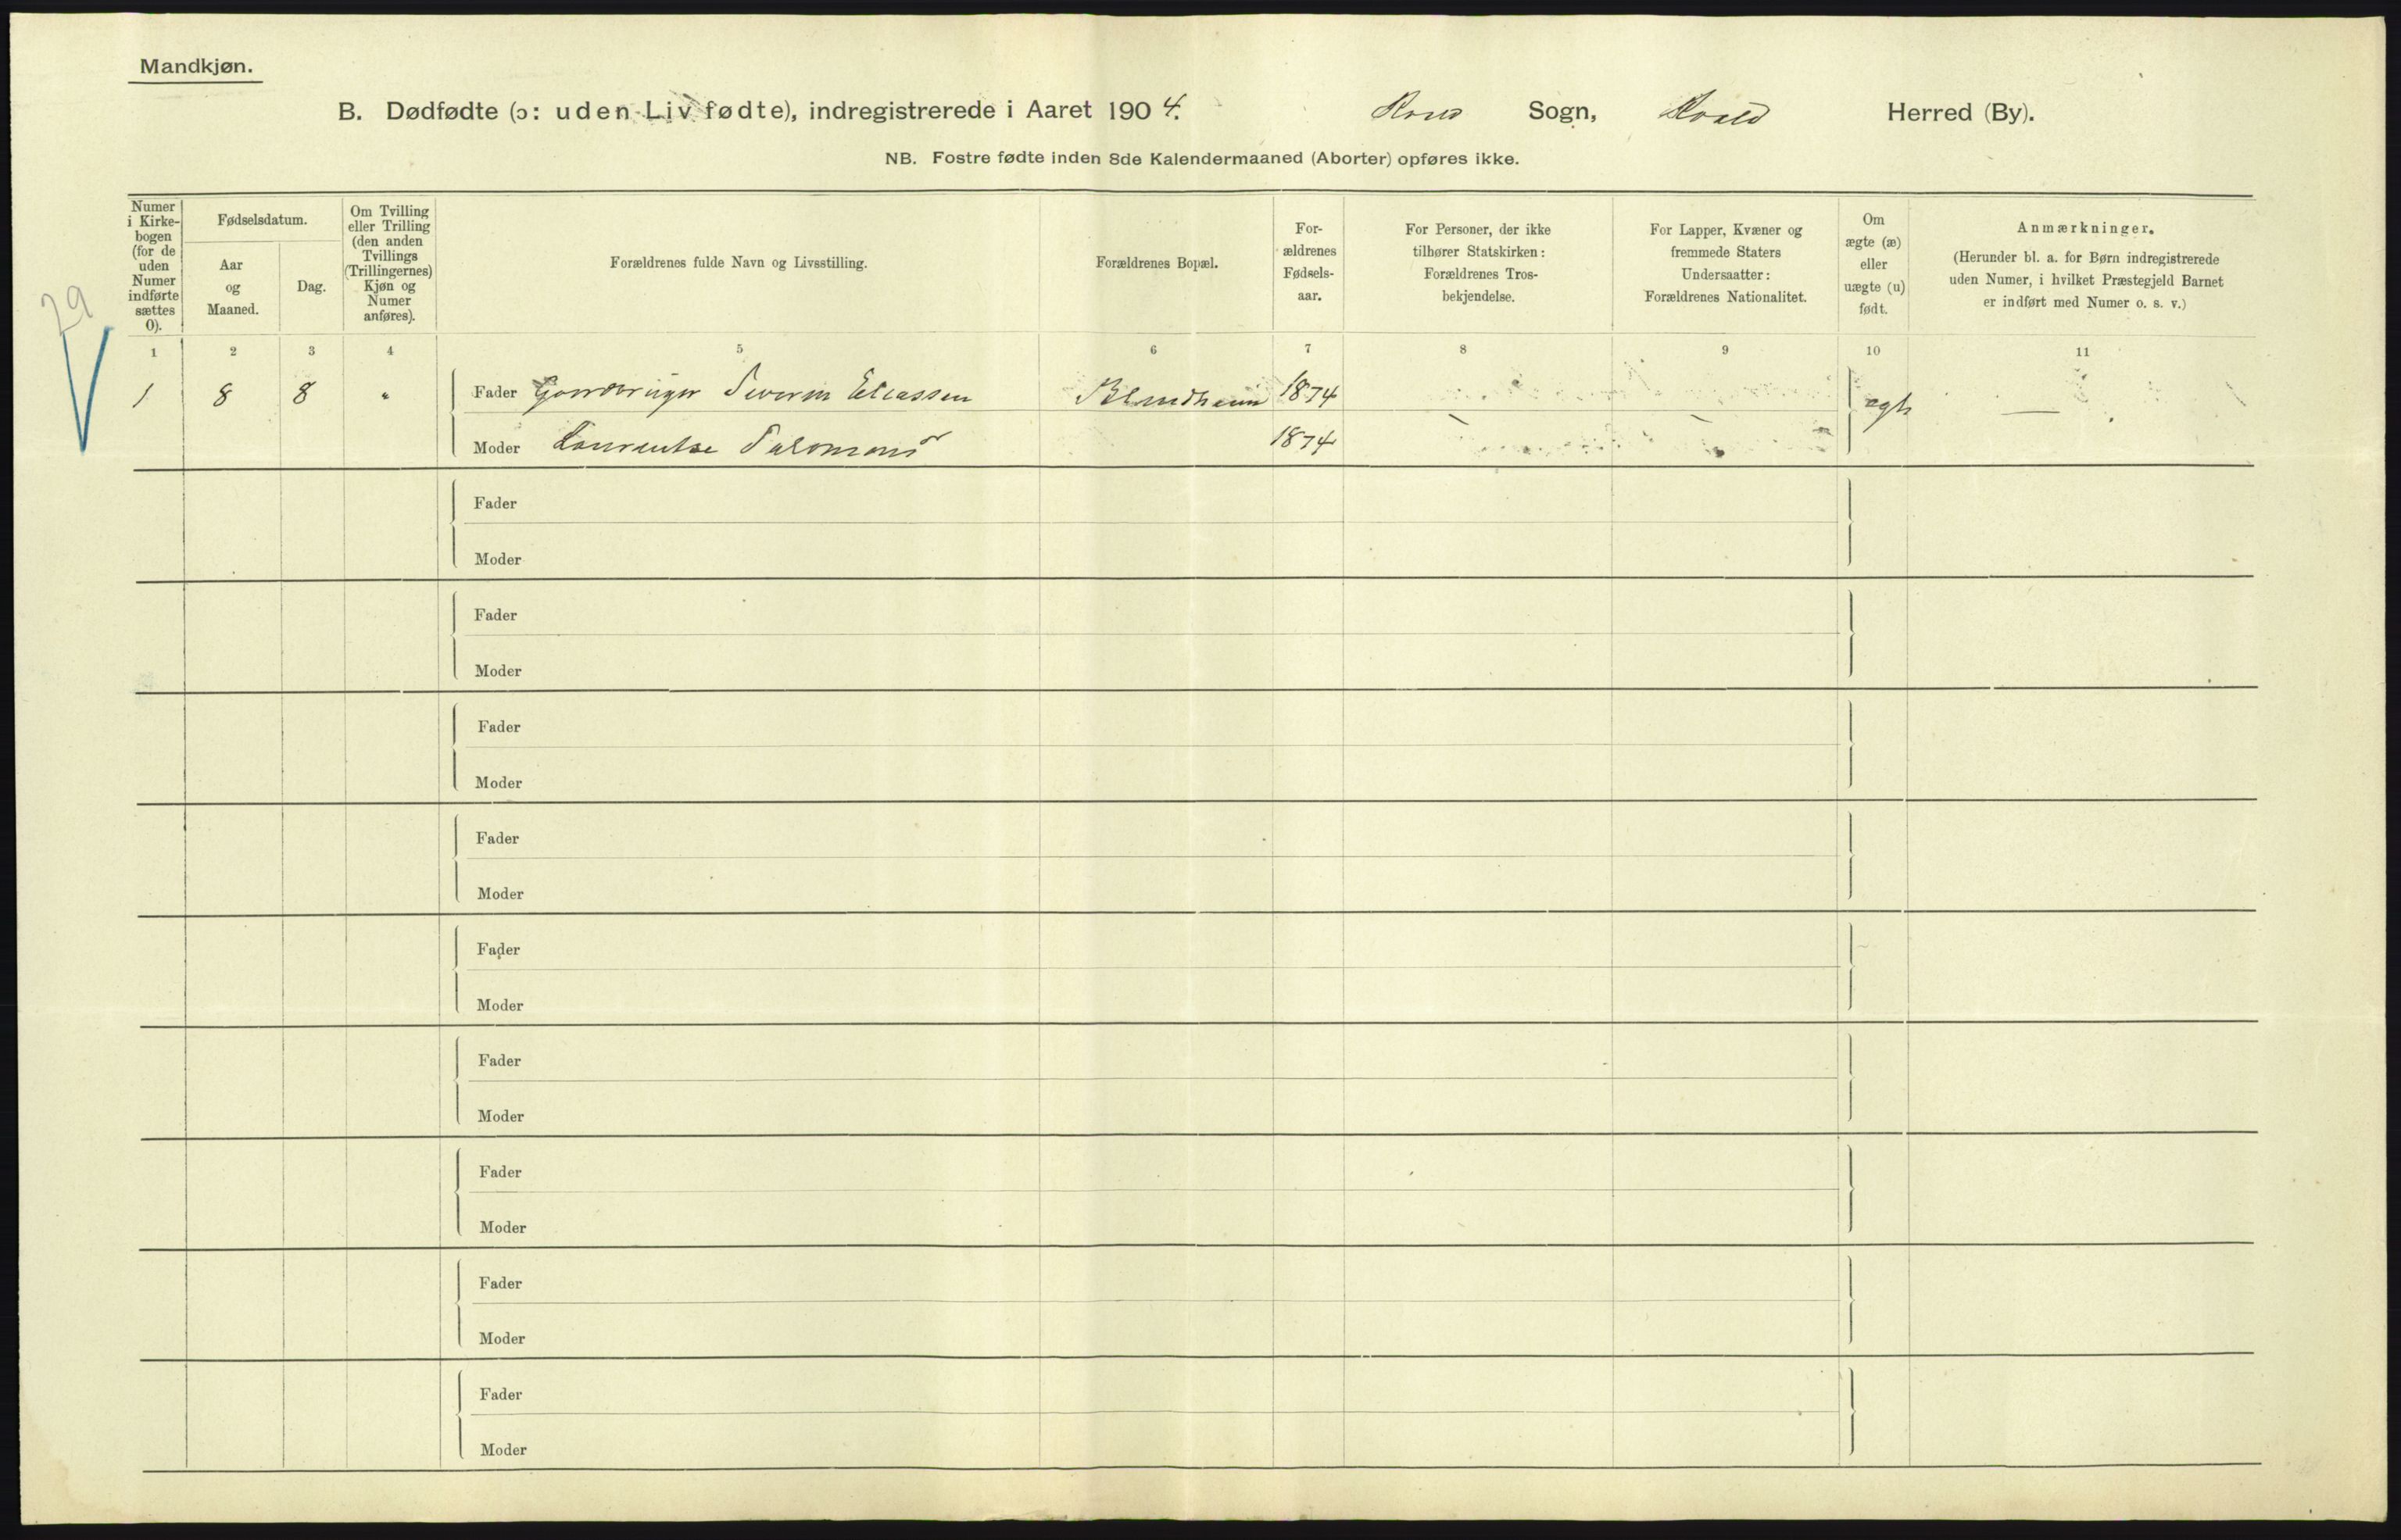 Mandkjøn.
B. Dødfødte (ɔ: uden Liv fødte), indregistrerede i Aaret 1904. Sogn, Roald Herred (By).
NB. Fostre fødte inden 8de Kalendermaaned (Aborter) opføres ikke.
29
Numer
i Kirke-
bogen
(for de
uden
Numer
indførte
sættes
0).
Fødselsdatum.
Aar
og
Maaned.
Dag.
Om Tvilling
eller Trilling
(den anden
Tvillings
(Trillingernes)
Kjøn og
Numer
anføres).
Forældrenes fulde Navn og Livsstilling.
Forældrenes Bopæl.
For-
ældrenes
Fødsels-
aar.
For Personer, der ikke
tilhører Statskirken:
Forældrenes Tros-
bekjendelse.
For Lapper, Kvæner og
fremmede Staters
Undersaatter:
Forældrenes Nationalitet.
Om
ægte (æ)
eller
uægte (u)
født.
Anmærkninger.
(Herunder bl. a. for Børn indregistrerede
uden Numer, i hvilket Præstegjeld Barnet
er indført med Numer o. s. v.)
1 2 3 4 5 6 7 8 9 10 11
1 8 8 " Fader Gaardbruger Severin Eliassen Blindheim 1874 — — ægte —
Moder Laurentse Salomonsd 1874
Fader
Moder
Fader
Moder
Fader
Moder
Fader
Moder
Fader
Moder
Fader
Moder
Fader
Moder
Fader
Moder
Fader
Moder